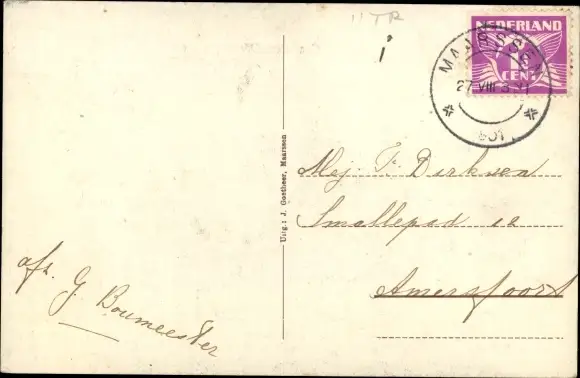 11TR
i
NEDERLAND
CENT
MAARSSEN
27 VIII
Uitg.: J. Gostheer, Maarssen
Mej. F. Dirksen
Smallepad 12
Amersfoort
afz. G. Boumeester